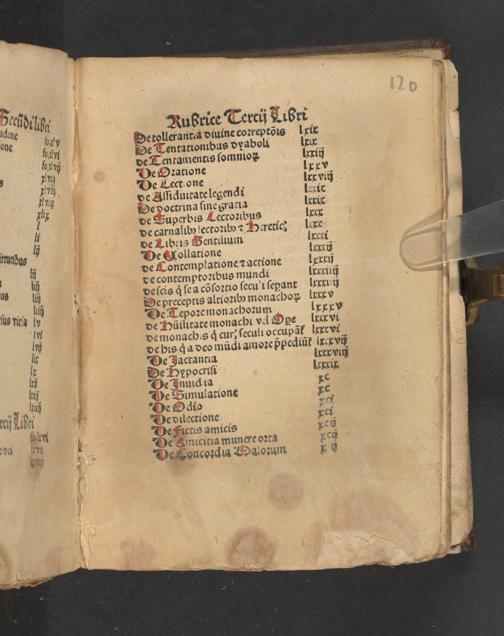 Secūdi libri
fo.xlv
fo.xlvi
xlvij
xlix
l
li
lij
lij
lv
lvi
lx
lxij
Tercij Libri
120
Rubrice Tercij Libri
De tollerantia diuine correptōis lxix
De Tentationibus dyaboli lxix
de Tentamentis somnioꝝ lxxiij
De Oratione lxxv
De Lectione lxxviij
de Assiduitate legendi lxxix
De doctrina sine gratia lxxix
de Superbis Lectoribus lxxx
de carnalibꝰ lectoribꝰ ⁊ Hereticꝭ lxx
de Libris Gentilium lxxxi
De Collatione lxxxij
de Contemplatione ⁊ actione lxxxij
de contemptoribus mundi lxxxiiij
de scis q̄ se a cōsortio seculi sepant lxxxiiij
De preceptis altioribꝰ monachoꝝ lxxxv
De Tepore monachorum lxxxv
de Hūilitate monachi vel Ope lxxxvi
de monachis q̄ curꝭ seculi occupāt lxxxvij
de his q̄ a deo mūdi amore p̄pediūt lxxxviij
De Jactantia lxxxviij
De Hypocrisi lxxxix
De Inuidia xc
De Simulatione xc
De Odio xci
De dilectione xci
De Fictis amicis xcij
De Amicitia munere orta xcij
De Concordia Malorum xcij